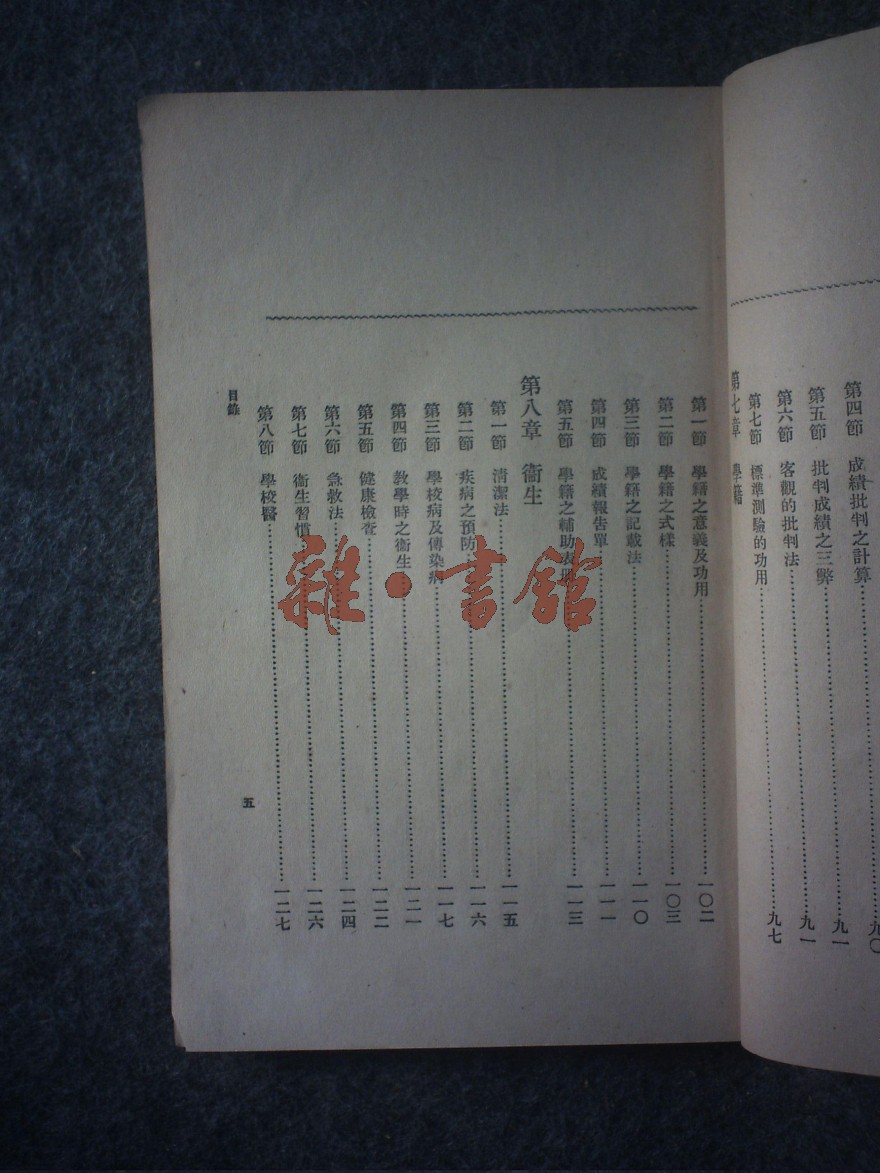 第四節 成績批判之計算……九〇
第五節 批判成績之三弊……九一
第六節 客觀的批判法……九一
第七節 標準測驗的功用……九七
第七章 學籍
第一節 學籍之意義及功用……一〇二
第二節 學籍之式樣……一〇三
第三節 學籍之記載法……一一〇
第四節 成績報告單……一一一
第五節 學籍之輔助表冊……一一三
第八章 衞生
第一節 清潔法……一一五
第二節 疾病之預防……一一六
第三節 學校病及傳染病……一一七
第四節 教學時之衞生……一二一
第五節 健康檢查……一二二
第六節 急救法……一二四
第七節 衞生習慣……一二六
第八節 學校醫……一二七
目錄
五
雜·書館